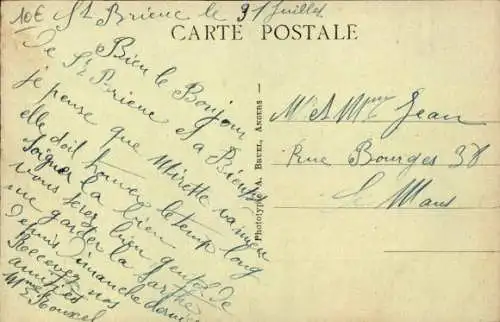 10€ St Brieuc le 31 Juillet
CARTE POSTALE
Bien le Bonjour
De St Brieuc et a Bientôt
je pense que Mirette va mieux
elle doit trouver le temps long
Soigner la bien
vous serez bien gentil de
me garder la Sarthe
Depuis dimanche dernier
Recevez nos
amitiés
Mme
Phototypie A. Bruel, Angers
Mr et Mme Jean
Rue Bourges 38
Le Mans